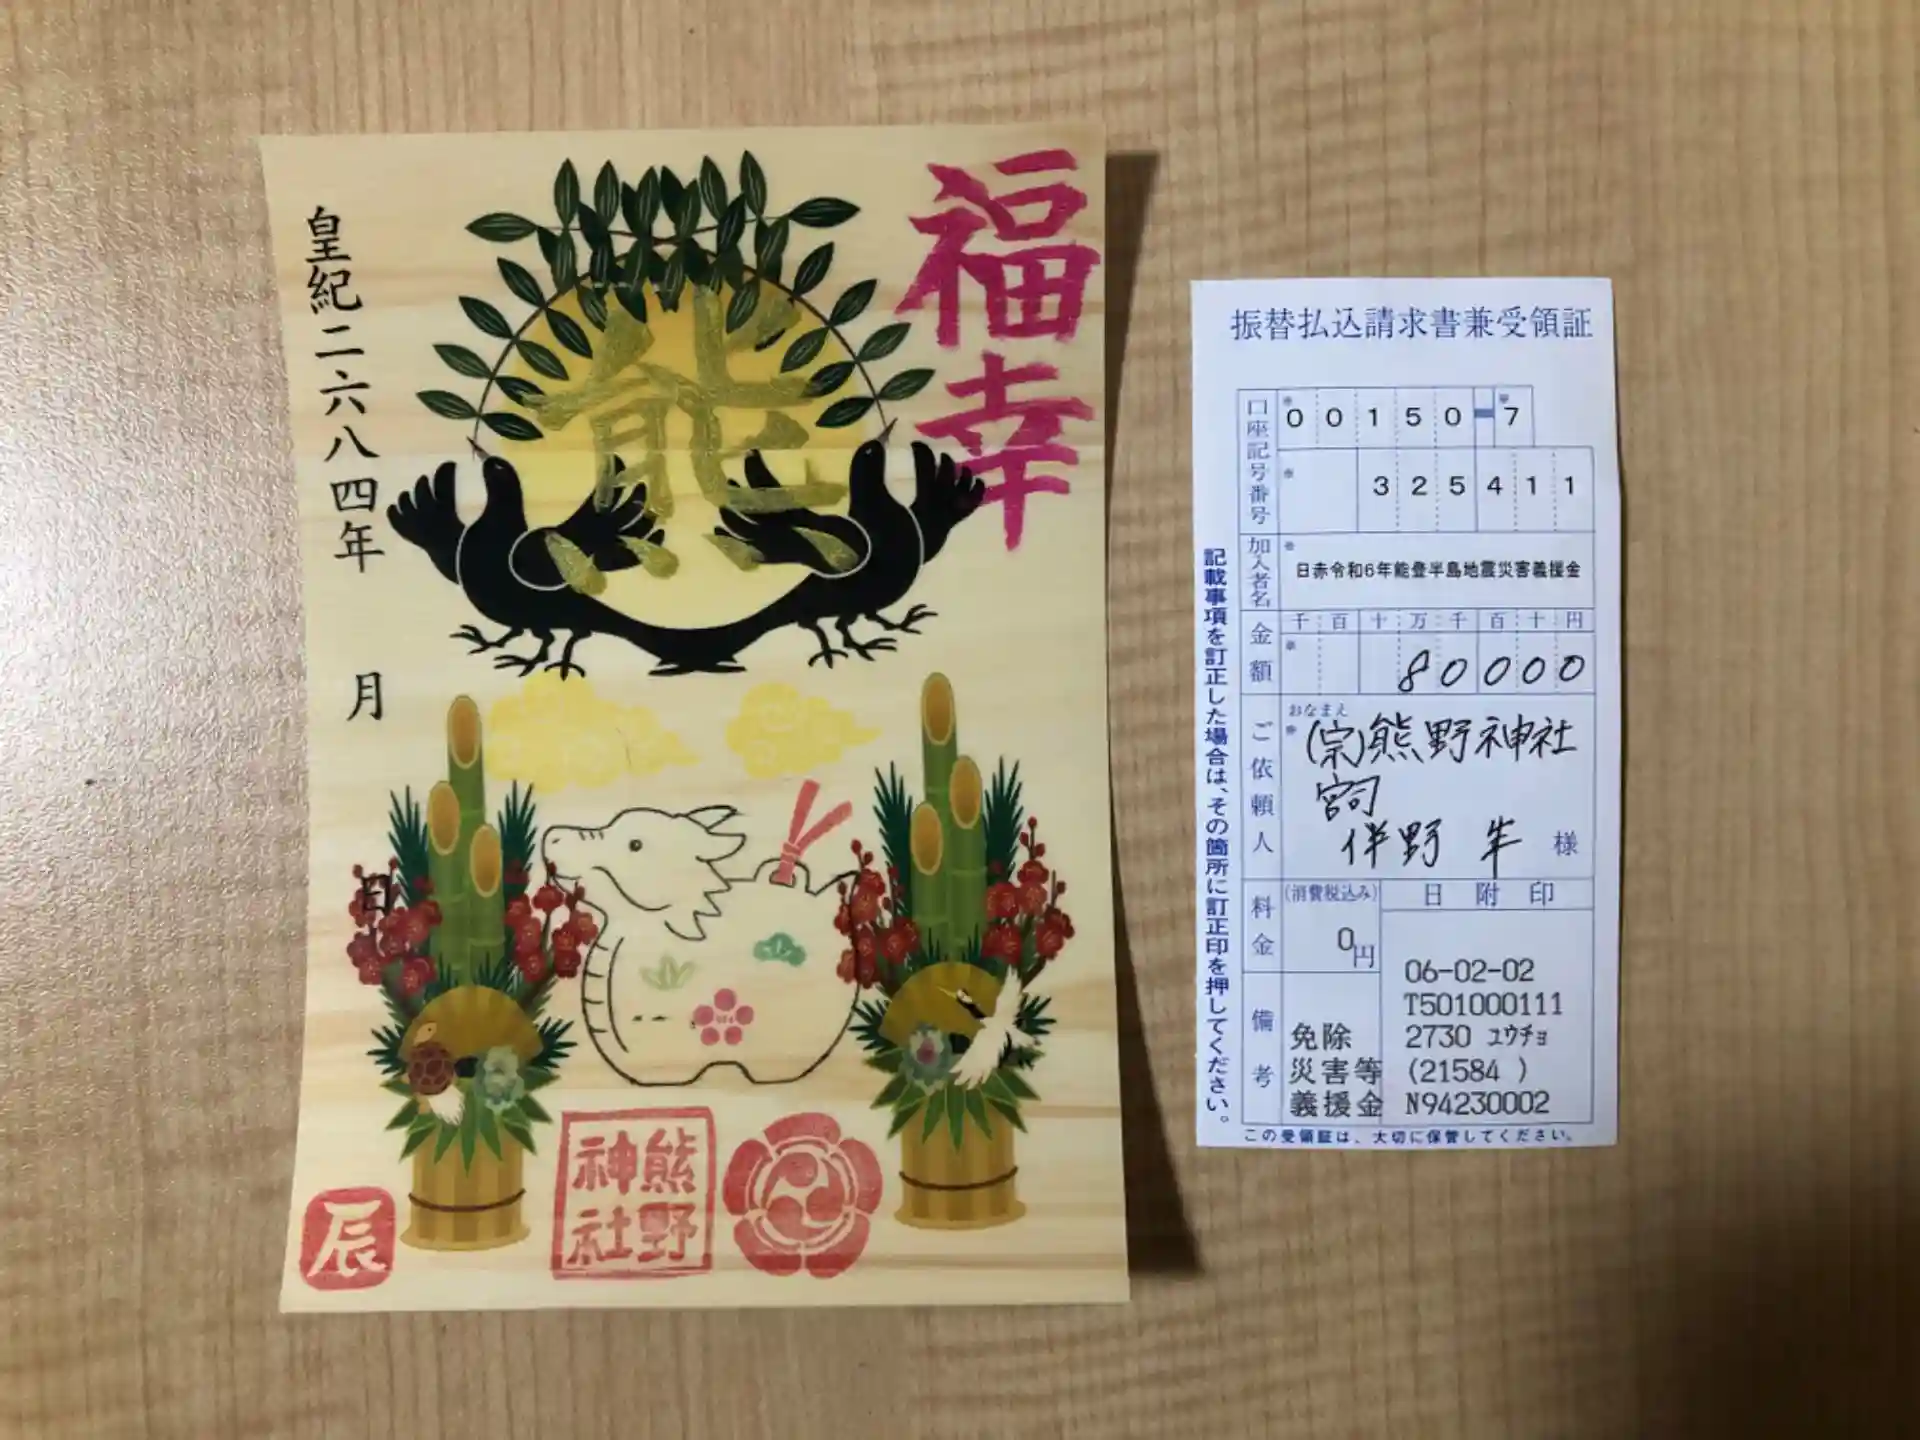 福幸
能
皇紀二六八四年
月
日
熊野
神社
辰
振替払込請求書兼受領証
口座記号番号
00150-7
325411
加入者名
日赤令和6年能登半島地震災害義援金
金額
千百十万千百十円
80000
ご依頼人
おなまえ
(宗)熊野神社
宮司
伴野 半
様
料金
(消費税込み)
0円
日附印
06-02-02
T501000111
2730 ユウチョ
(21584 )
N94230002
備考
免除
災害等
義援金
記載事項を訂正した場合は、その箇所に訂正印を押してください。
この受領証は、大切に保管してください。